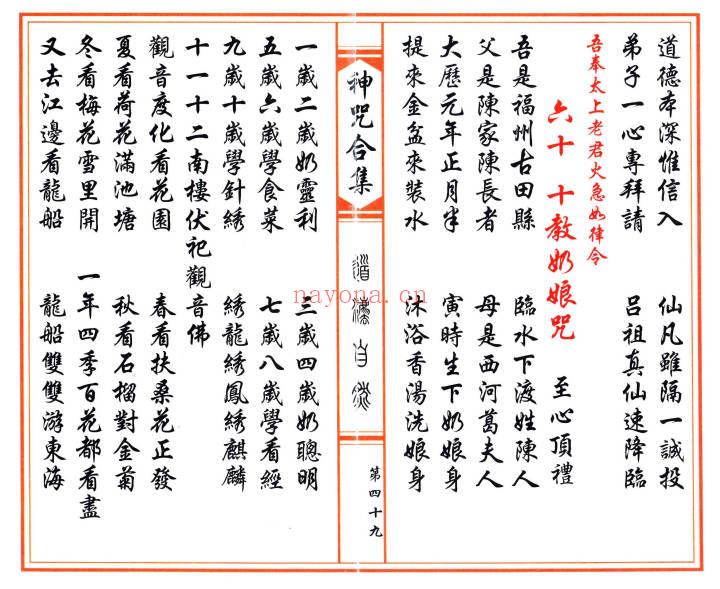 道德本深惟信入 仙凡雖隔一誠投
弟子一心專拜請 呂祖真仙速降臨
吾奉太上老君火急如律令
六十 十教奶娘咒 至心頂禮
吾是福州古田縣 臨水下渡姓陳人
父是陳家陳長者 母是西河葛夫人
大歷元年正月半 寅時生下奶娘身
提來金盆來裝水 沐浴香湯洗娘身
神咒合集
道法自然
第四十九
一歲二歲奶靈利 三歲四歲奶聰明
五歲六歲學食菜 七歲八歲學看經
九歲十歲學針綉 綉龍綉鳳綉麒麟
十一十二南樓伏祀觀音佛
觀音度化看花園 春看扶桑花正發
夏看荷花滿池塘 秋看石榴對金菊
冬看梅花雪里開 一年四季百花都看盡
又去江邊看龍船 龍船雙雙游東海
nayona.cn